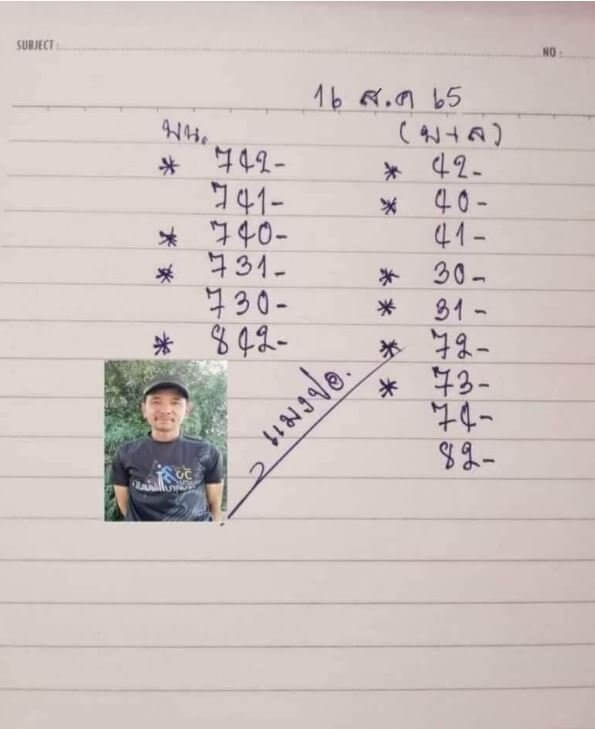 SUBJECT : NO :
16 ส.ค 65
บน. (บ+ล)
* 742- * 42-
741- * 40-
* 740- 41-
* 731- * 30-
730- * 31-
* 842- * 72-
* 73-
74-
82-
แมงปอ.